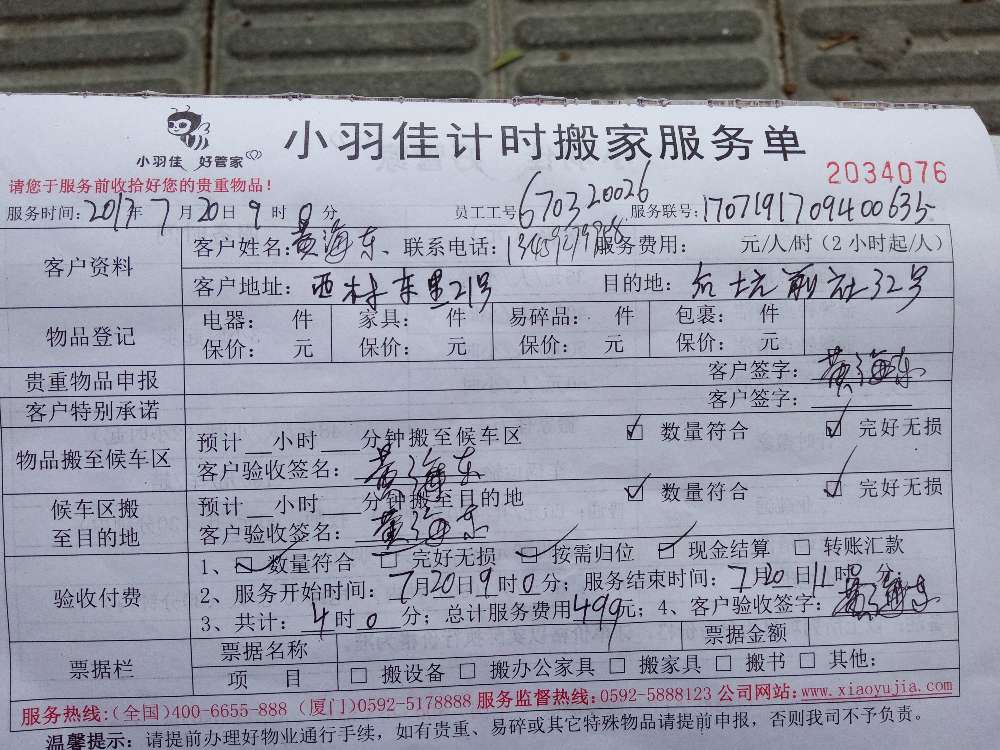 小羽佳 好管家
小羽佳计时搬家服务单
2034076
请您于服务前收拾好您的贵重物品！
服务时间：2017年7月20日9时0分 员工工号670320026 服务联号：1707191709400635
客户资料
客户姓名：黄海东、联系电话： 服务费用： 元/人/时（2小时起/人）
客户地址：西村东里21号 目的地：后坑前社32号
物品登记
电器： 件 家具： 件 易碎品： 件 包裹： 件
保价： 元 保价： 元 保价： 元 保价： 元
贵重物品申报 客户签字：黄海东
客户特别承诺 客户签字：
物品搬至候车区
预计__小时___分钟搬至候车区 ☑ 数量符合 ☑ 完好无损
客户验收签名：黄海东
候车区搬至目的地
预计__小时___分钟搬至目的地 ☑ 数量符合 ☑ 完好无损
客户验收签名：黄海东
验收付费
1、☑数量符合 ☐ 完好无损 ☑ 按需归位 ☑ 现金结算 ☐ 转账汇款
2、服务开始时间：7月20日9时0分；服务结束时间：7月20日11时0分；
3、共计：4时0分；总计服务费用499元；4、客户验收签字：黄海东
票据栏
票据名称 票据金额
项 目 ☐ 搬设备 ☐ 搬办公家具 ☐ 搬家具 ☐ 搬书 ☐ 其他：
服务热线：(全国)400-6655-888 (厦门)0592-5178888 服务监督热线：0592-5888123 公司网站：www.xiaoyujia.com
温馨提示：请提前办理好物业通行手续，如有贵重、易碎或其它特殊物品请提前申报，否则我司不予负责。